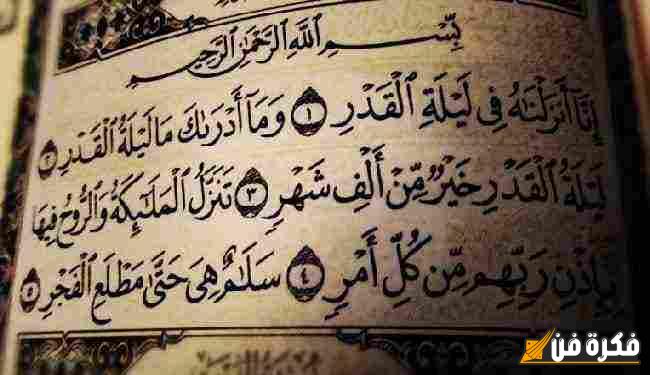 بِسْمِ اللَّهِ الرَّحْمَٰنِ الرَّحِيمِ
إِنَّا أَنزَلْنَاهُ فِي لَيْلَةِ الْقَدْرِ ١ وَمَا أَدْرَاكَ مَا لَيْلَةُ الْقَدْرِ ٢
لَيْلَةُ الْقَدْرِ خَيْرٌ مِّنْ أَلْفِ شَهْرٍ ٣ تَنَزَّلُ الْمَلَائِكَةُ وَالرُّوحُ فِيهَا
بِإِذْنِ رَبِّهِم مِّن كُلِّ أَمْرٍ ٤ سَلَامٌ هِيَ حَتَّىٰ مَطْلَعِ الْفَجْرِ ٥
فكرة فن